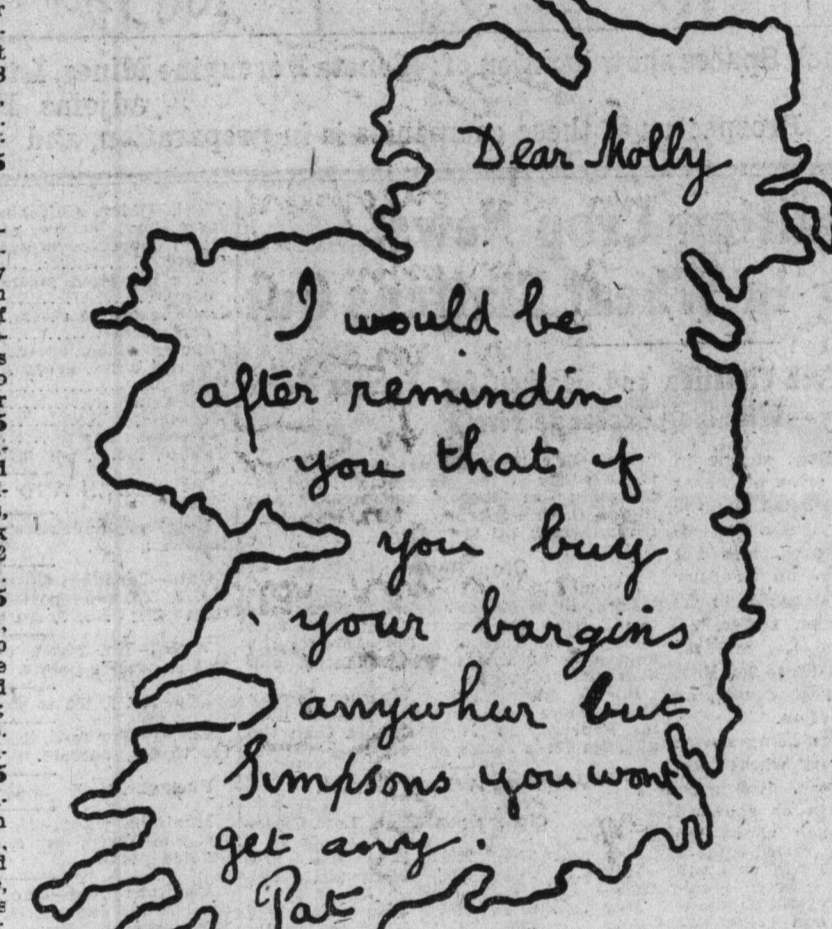 Dear Molly
I would be
after remindin
you that if
you buy
your bargins
anywhur but
Simpsons you wont
get any.
Pat